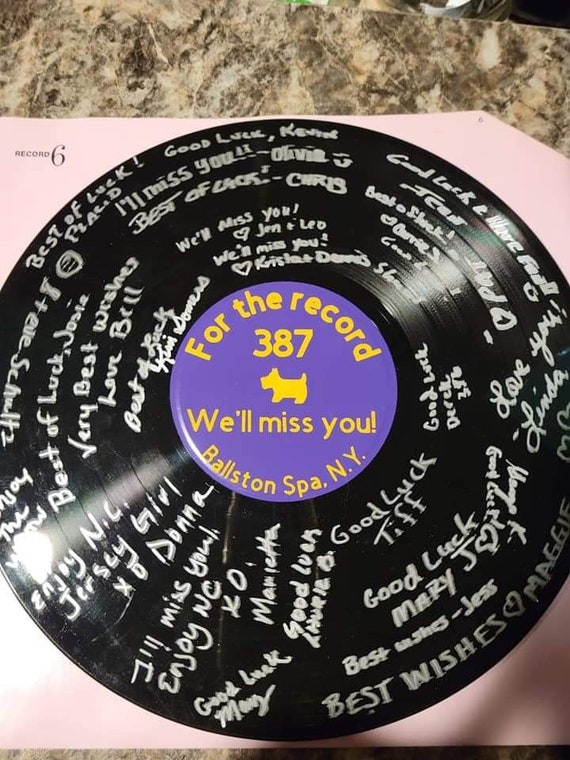 RECORD 6
6
For the record
387
We'll miss you!
Ballston Spa, N.Y.
GOOD LUCK, KEVIN
I'll miss you!! - OLIVIA
BEST OF LUCK! - CHRIS
Best of Luck!
We'll Miss you!
♡ Jen + Leo
We'll miss you!
♡ Krista + Dennis
Good Luck &
Best of Luck, Josie
Very Best Wishes
Love Bill
Best of Luck
Kim
Enjoy N.C.
Jersey Girl
xo Donna
I'll miss you!
Enjoy NC
KO
Marietta
Good Luck
Laurie B.
Good Luck
Mary
Good Luck
Tiff
Good Luck
Mary J
Good Luck
Best wishes - Jess
BEST WISHES ♡ MAGGIE
Love you,
Linda
Enjoy
The